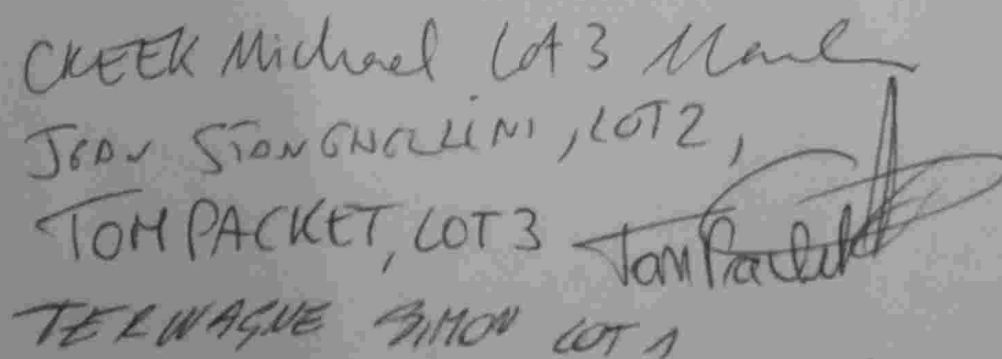 CREEK Michael LOT 3
JEAN STANGHELLINI, LOT 2,
TOM PACKET, LOT 3 Tom Packet
TERWAGNE SIMON LOT 1